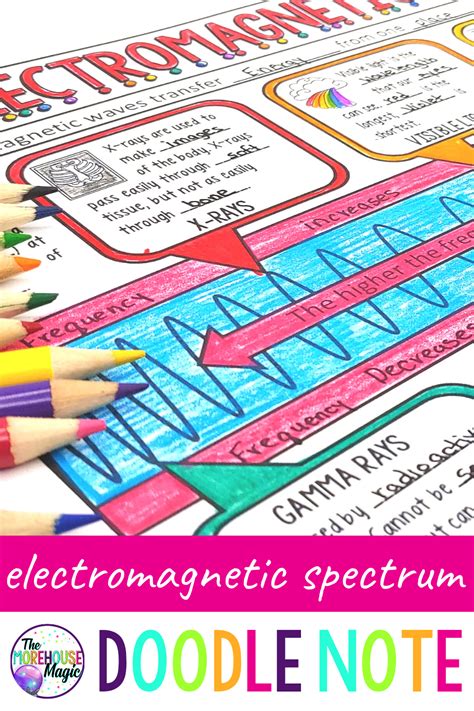 ELECTROMAGNETIC
magnetic waves transfer Energy from one place
X-rays are used to
make images
of the body. X-rays
pass easily through soft
tissue, but not as easily
through bone.
X-RAYS
Visible light is the
wavelengths
that our eye
can see. red is the
longest, violet is
shortest.
VISIBLE
at
of
Frequency Increases
The higher the
Frequency Decreases
GAMMA RAYS
by radioactive
Cannot be
but can
electromagnetic spectrum
The
MOREHOUSE
Magic
DOODLE NOTE